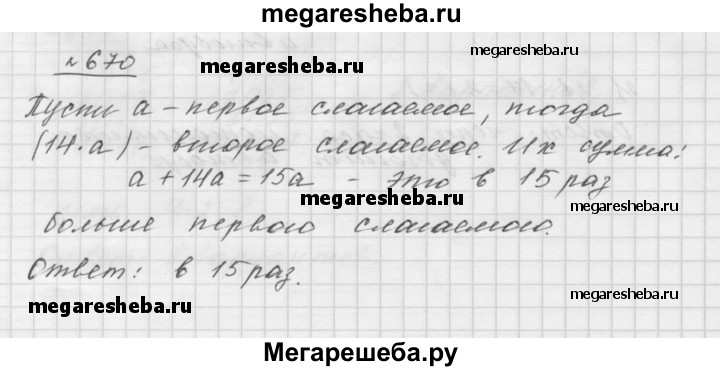 megaresheba.ru
№ 670
megaresheba.ru
megaresheba.ru
Пусть a – первое слагаемое, тогда
(14·a) – второе слагаемое. Их сумма:
a + 14a = 15a – это в 15 раз
megaresheba.ru
megaresheba.ru
больше первого слагаемого.
Ответ: в 15 раз.
megaresheba.ru
megaresheba.ru
Мегарешеба.ру